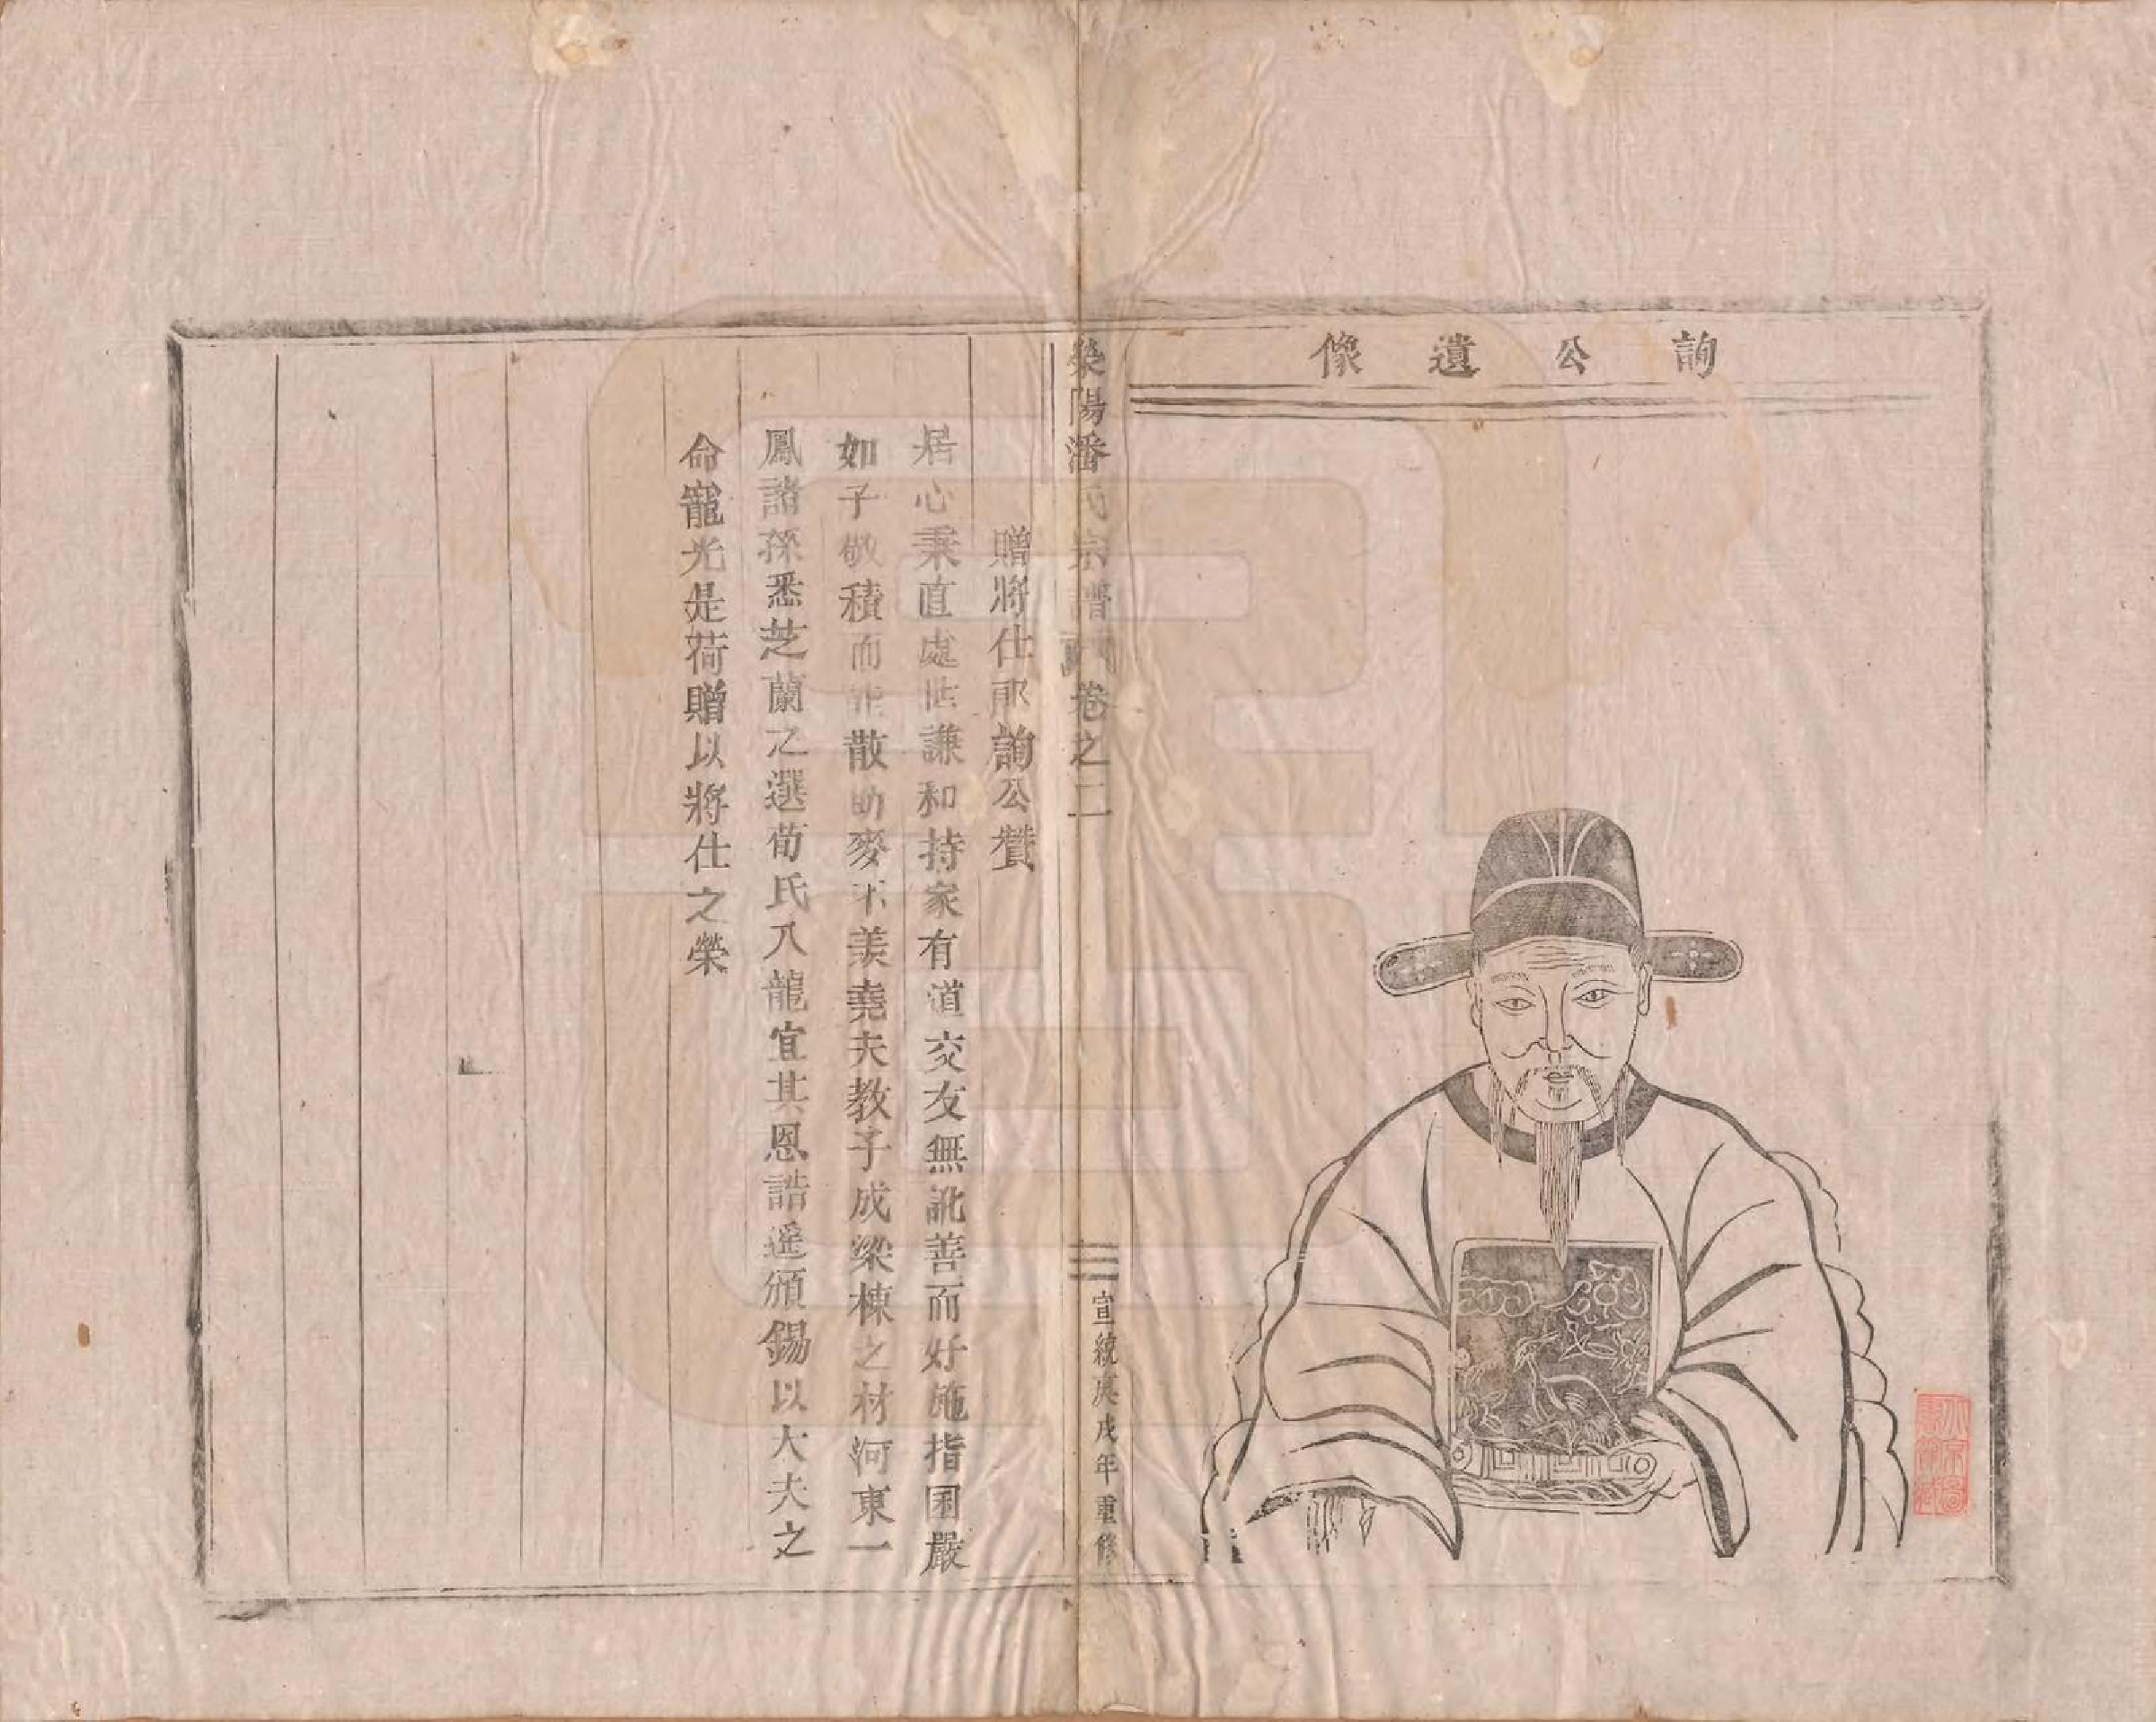 詢公遺像
滎陽潘氏宗譜 卷之二
宣統庚戌年重修
贈將仕郎詢公贊
居心秉直處世謙和持家有道交友無訛善而好施指囷嚴
如子敬積而能散助麥不羨堯夫教子成梁棟之材河東一
鳳諸孫悉芝蘭之選荀氏八龍宜其恩誥遥頒錫以大夫之
命寵光是荷贈以將仕之榮